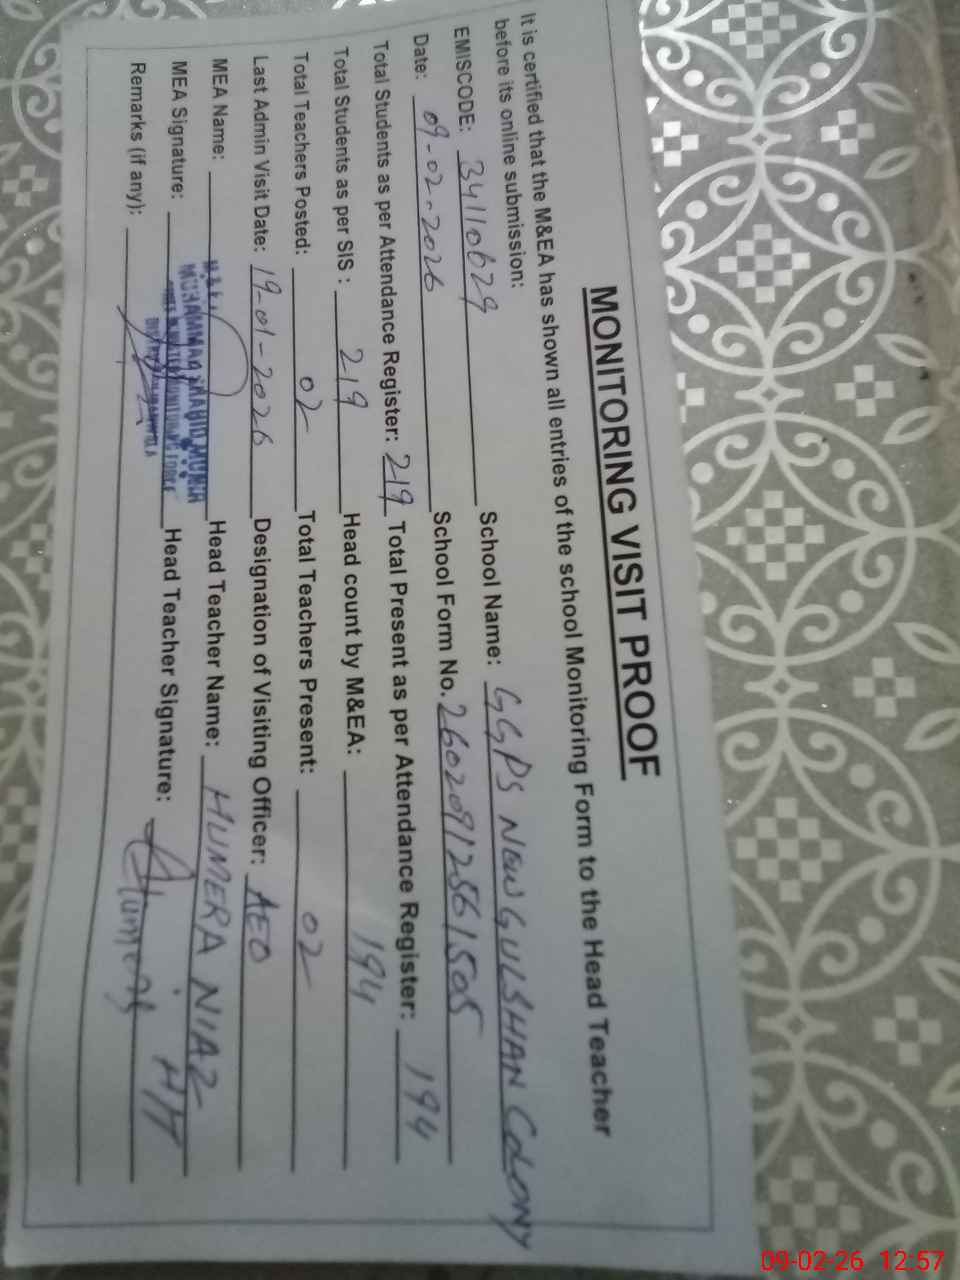 MONITORING VISIT PROOF
It is certified that the M&EA has shown all entries of the school Monitoring Form to the Head Teacher
before its online submission:
EMISCODE: 34110629 School Name: GGPS NEW GULSHAN COLONY
Date: 09-02-2026 School Form No. 26020912561505
Total Students as per Attendance Register: 219 Total Present as per Attendance Register: 194
Total Students as per SIS : 219 Head count by M&EA: 194
Total Teachers Posted: 02 Total Teachers Present: 02
Last Admin Visit Date: 19-01-2026 Designation of Visiting Officer: AEO
MEA Name: Head Teacher Name: HUMERA NIAZ
MEA Signature: Head Teacher Signature: HT
Remarks (if any):
09-02-26 12:57